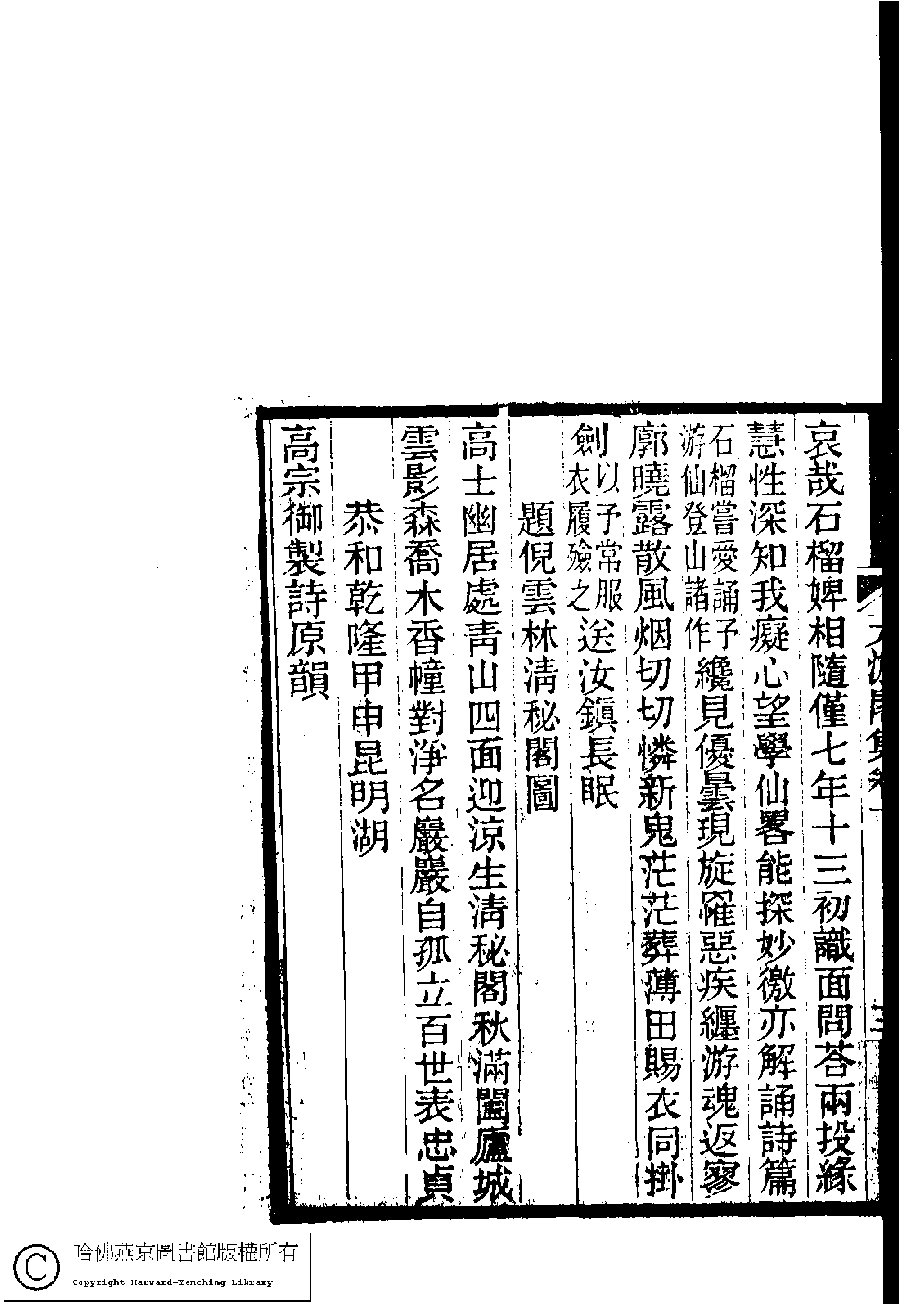 天游閣集卷一
三
哀哉石榴婢相隨僅七年十三初識面問荅兩投緣
慧性深知我癡心望學仙畧能探妙徼亦解誦詩篇
石榴嘗愛誦子游仙登山諸作纔見優曇現旋罹惡疾纏游魂返寥
廓曉露散風烟切切憐新鬼茫茫葬薄田賜衣同掛
劍以予常服衣履殮之送汝鎮長眠
題倪雲林淸秘閣圖
高士幽居處靑山四面迎涼生淸秘閣秋滿闔廬城
雲影森喬木香幢對淨名巖巖自孤立百世表忠貞
恭和乾隆甲申昆明湖
高宗御製詩原韻
哈佛燕京圖書館版權所有
Copyright Harvard-Yenching Library